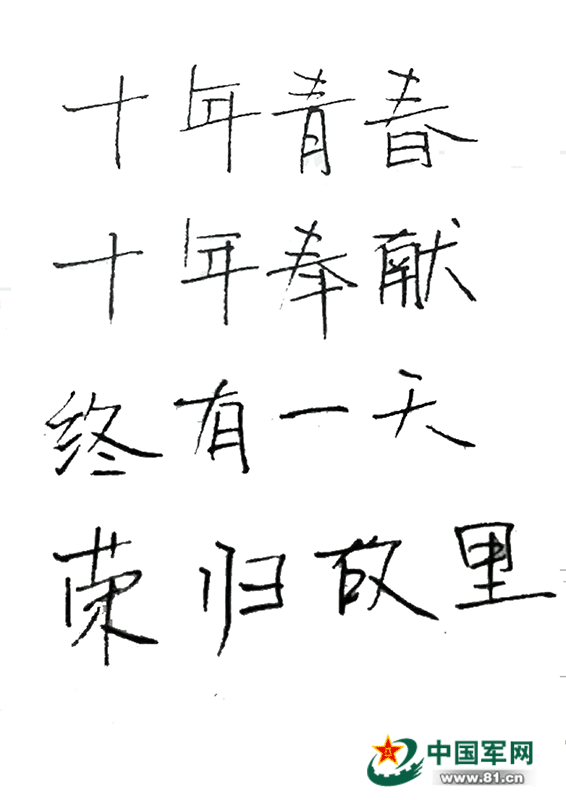 十年青春
十年奉献
终有一天
荣归故里
中国军网
www.81.cn